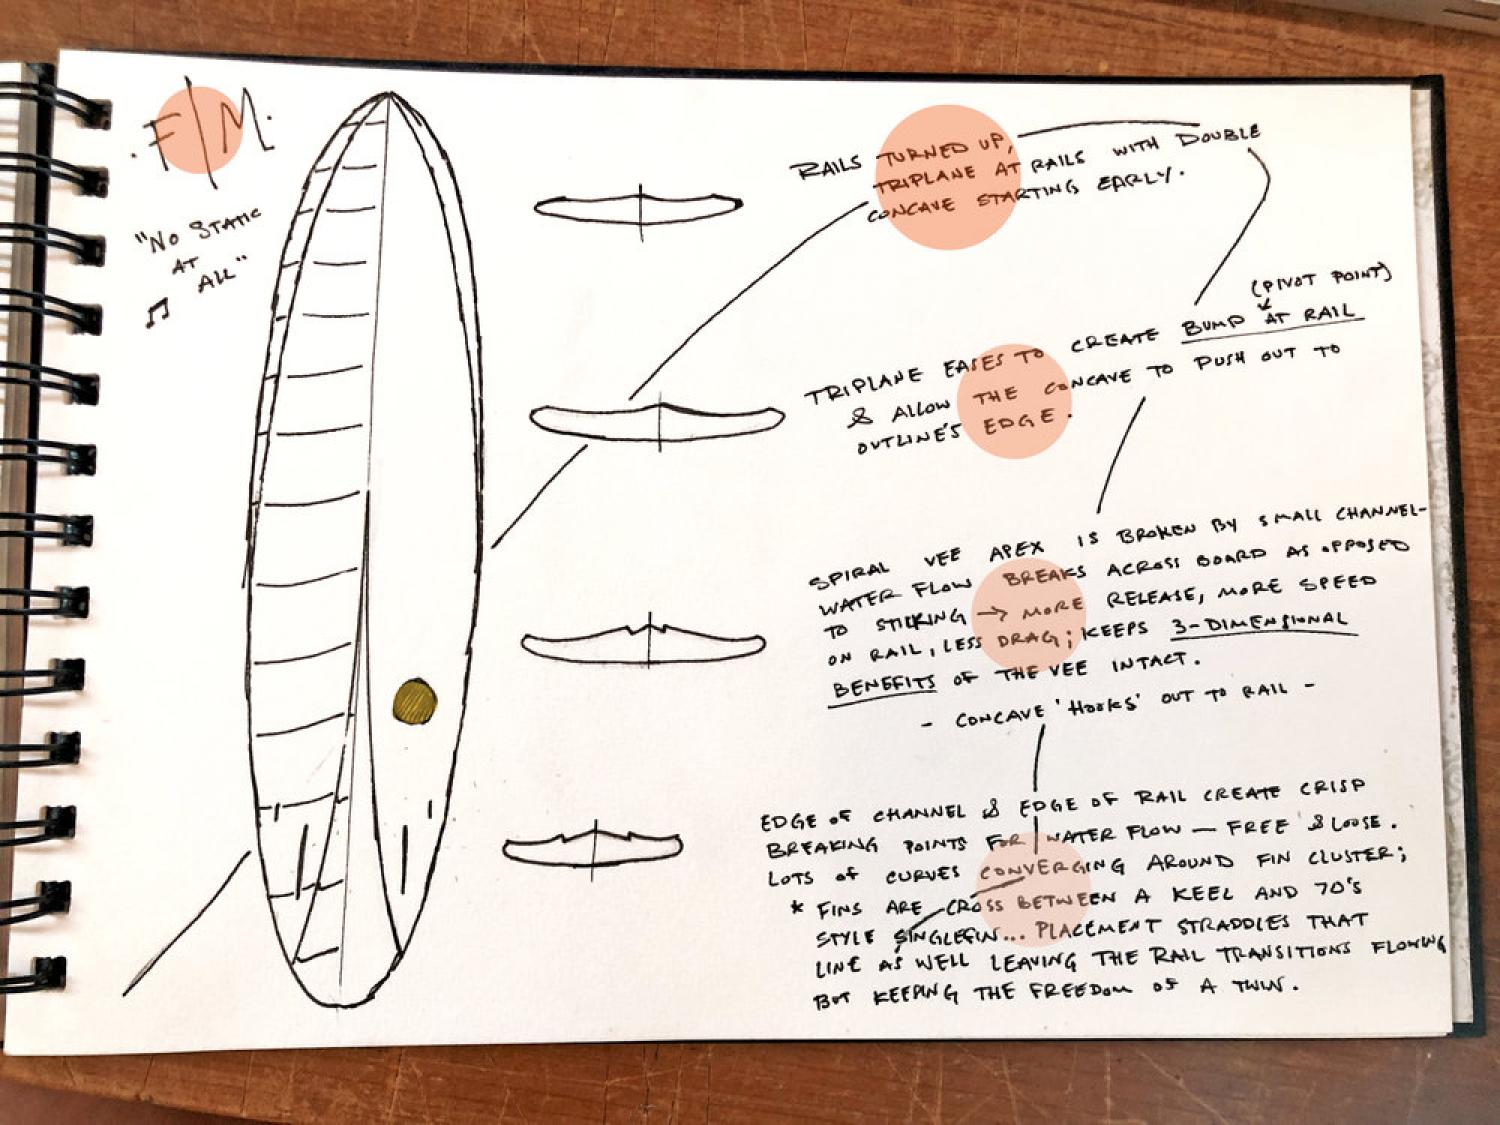 .F|M.
"NO STATIC
AT
ALL"
RAILS TURNED UP,
TRIPLANE AT RAILS WITH DOUBLE
CONCAVE STARTING EARLY.
(PIVOT POINT)
TRIPLANE EASES TO CREATE BUMP AT RAIL
& ALLOW THE CONCAVE TO PUSH OUT TO
OUTLINE'S EDGE.
SPIRAL VEE APEX IS BROKEN BY SMALL CHANNEL-
WATER FLOW BREAKS ACROSS BOARD AS OPPOSED
TO STICKING → MORE RELEASE, MORE SPEED
ON RAIL, LESS DRAG; KEEPS 3-DIMENSIONAL
BENEFITS OF THE VEE INTACT.
- CONCAVE 'HOOKS' OUT TO RAIL -
EDGE OF CHANNEL & EDGE OF RAIL CREATE CRISP
BREAKING POINTS FOR WATER FLOW — FREE & LOOSE.
LOTS OF CURVES CONVERGING AROUND FIN CLUSTER;
* FINS ARE CROSS BETWEEN A KEEL AND 70'S
STYLE SINGLEFIN... PLACEMENT STRADDLES THAT
LINE AS WELL LEAVING THE RAIL TRANSITIONS FLOWING
BUT KEEPING THE FREEDOM OF A TWIN.